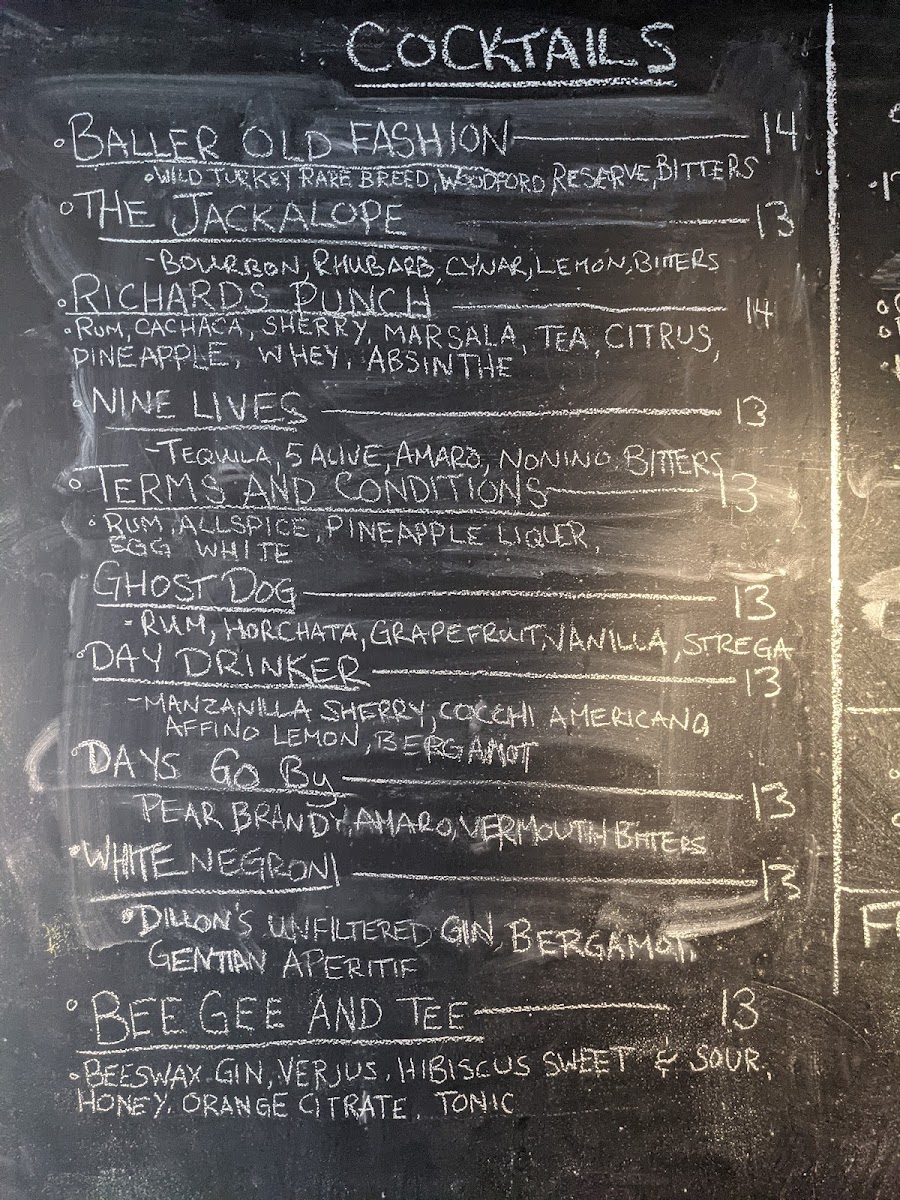 COCKTAILS
BALLER OLD FASHION 14
WILD TURKEY RARE BREED, WOODFORD RESERVE, BITTERS
THE JACKALOPE 13
- BOURBON, RHUBARB, CYNAR, LEMON, BITTERS
RICHARDS PUNCH 14
RUM, CACHACA, SHERRY, MARSALA, TEA, CITRUS,
PINEAPPLE, WHEY, ABSINTHE
NINE LIVES 13
- TEQUILA, 5 ALIVE, AMARO, NONINO BITTERS
TERMS AND CONDITIONS 13
RUM, ALLSPICE, PINEAPPLE LIQUER,
EGG WHITE
GHOST DOG 13
- RUM, HORCHATA, GRAPEFRUIT, VANILLA, STREGA
DAY DRINKER 13
- MANZANILLA SHERRY, COCCHI AMERICANO
AFFINO LEMON, BERGAMOT
DAYS GO BY 13
PEAR BRANDY, AMARO, VERMOUTH BITTERS
WHITE NEGRONI 13
DILLON'S UNFILTERED GIN, BERGAMOT,
GENTIAN APERITIF
BEE GEE AND TEE 13
BEESWAX GIN, VERJUS, HIBISCUS SWEET & SOUR,
HONEY, ORANGE CITRATE, TONIC